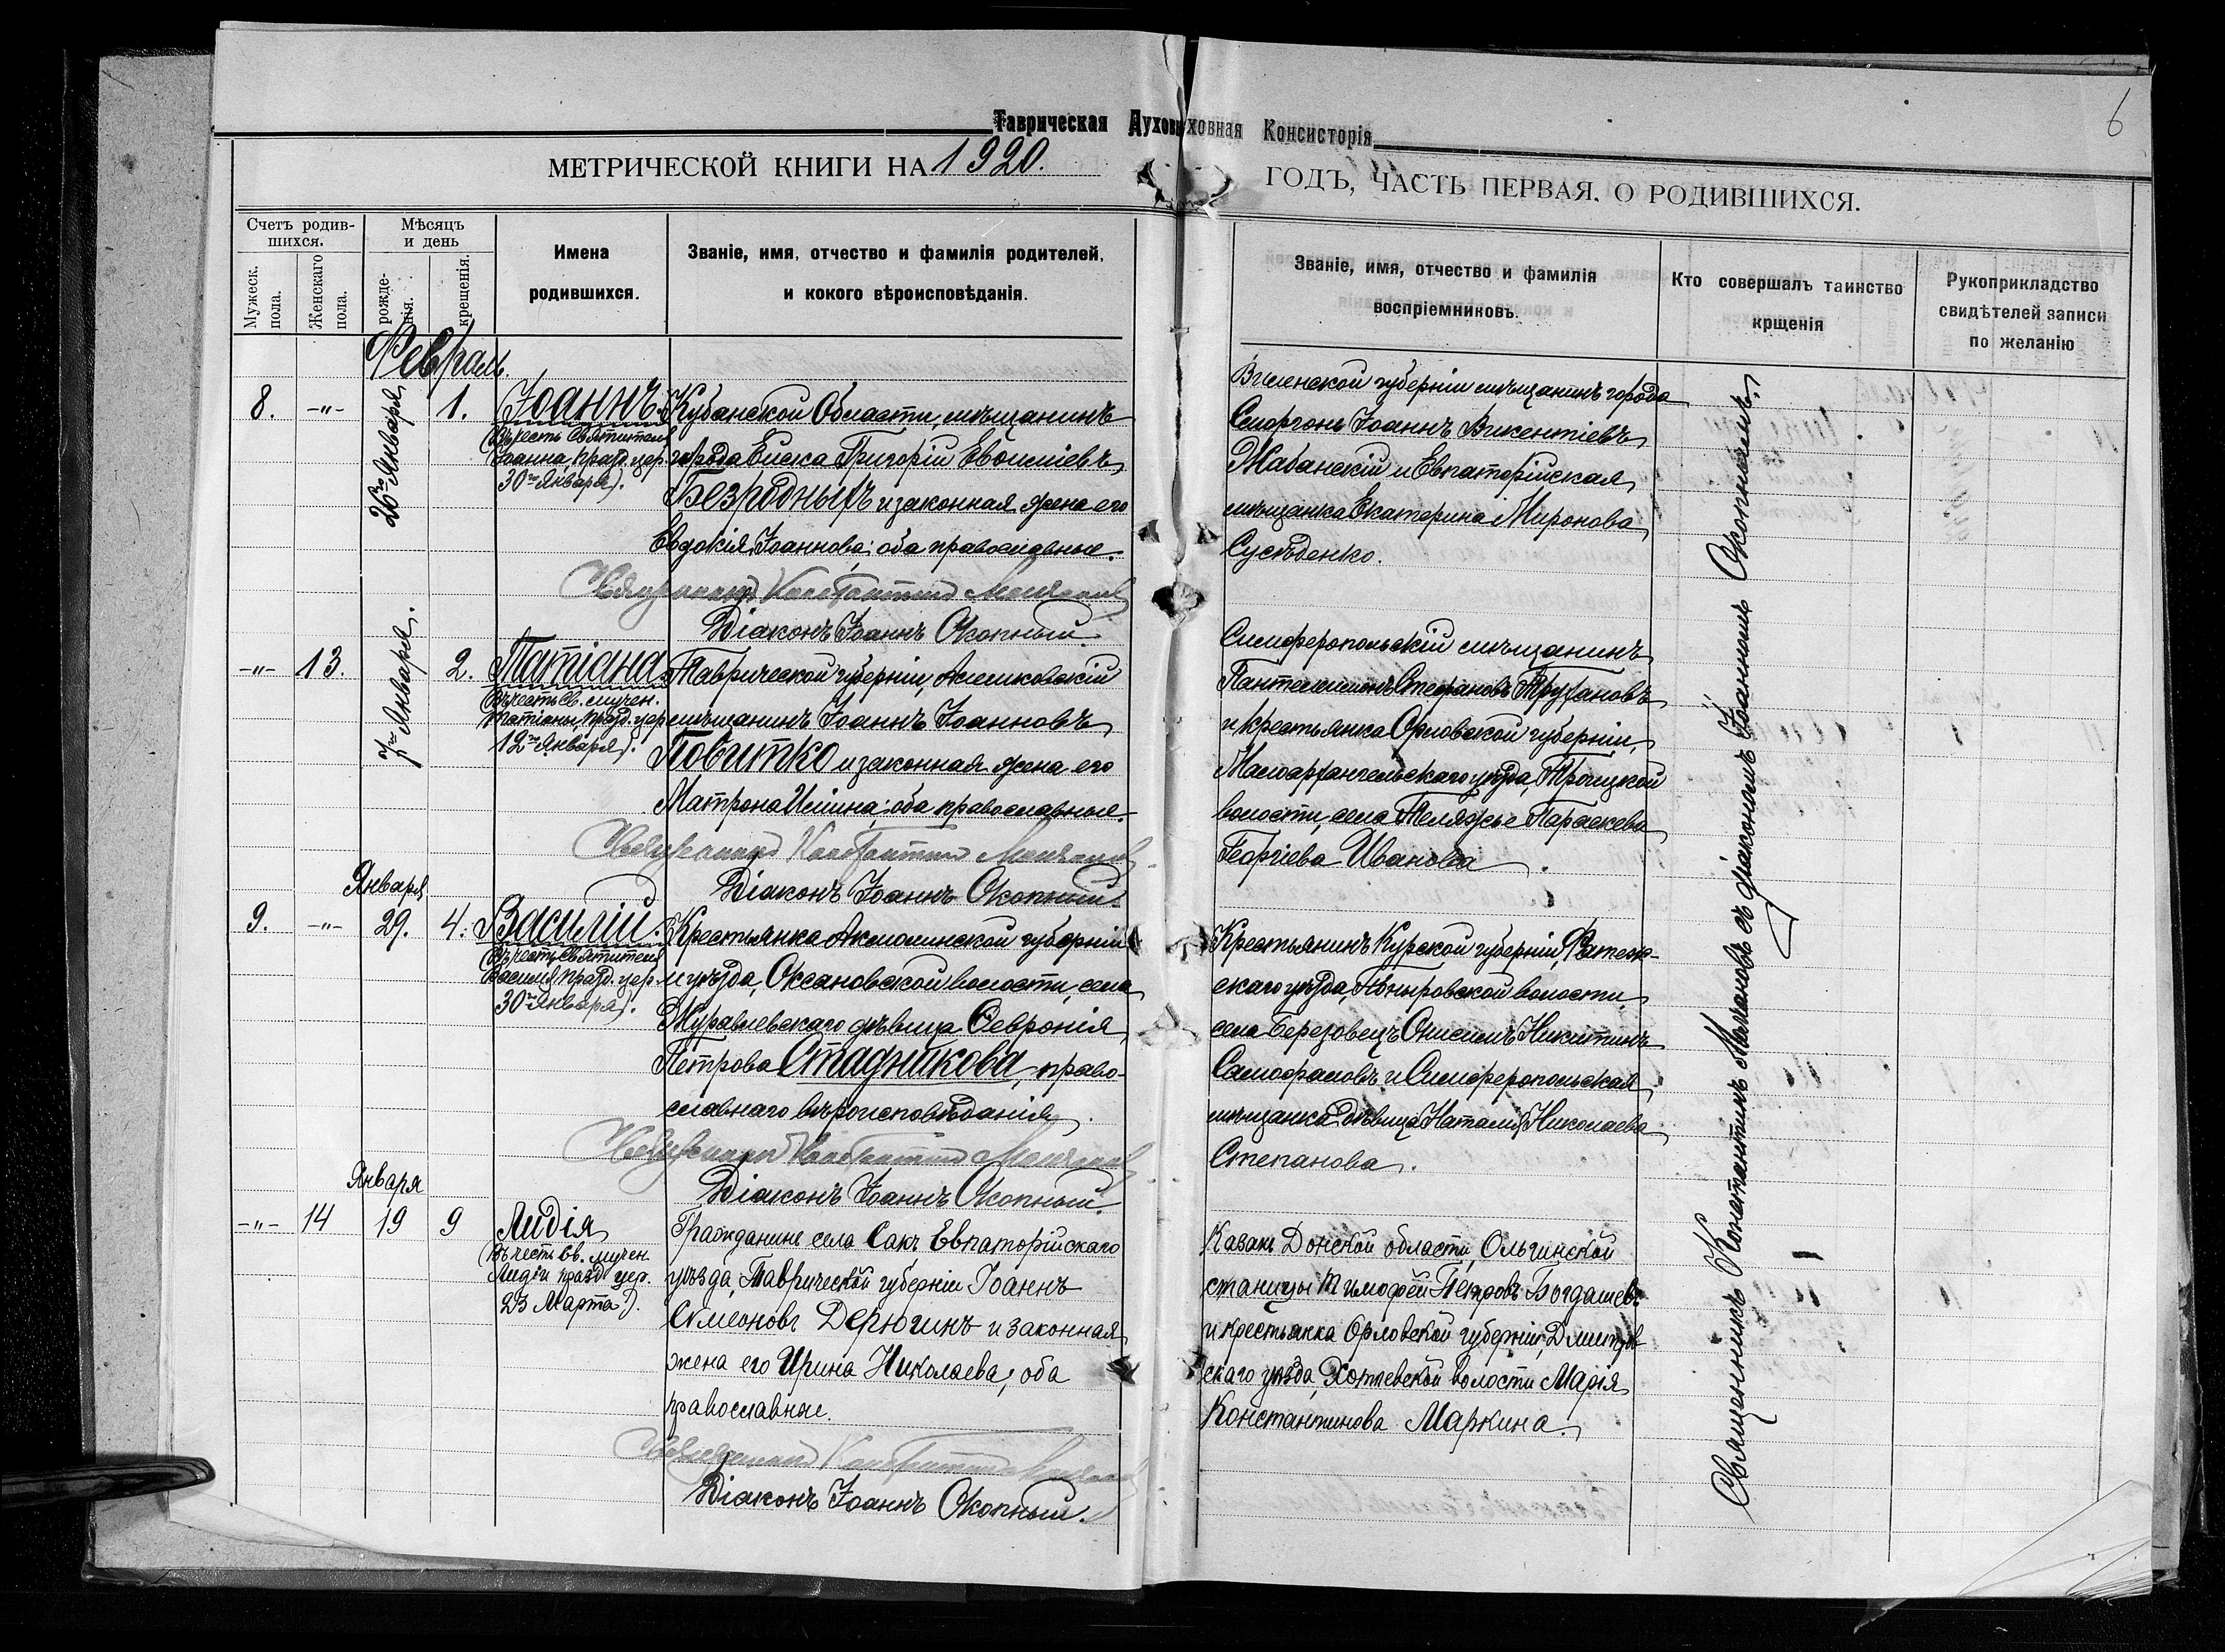 6
Таврическая Духовная Консисторія
МЕТРИЧЕСКОЙ КНИГИ НА 1920. ГОДЪ, ЧАСТЬ ПЕРВАЯ, О РОДИВШИХСЯ.
Счетъ родив-
шихся.
Мужеск.
пола.
Женскаго
пола.
Мѣсяцъ
и день
рожде-
нія.
крещенія.
Имена
родившихся.
Званіе, имя, отчество и фамилія родителей,
и кокого вѣроисповѣданія.
Званіе, имя, отчество и фамилія
воспріемниковъ.
Кто совершалъ таинство
крщенія
Рукоприкладство
свидѣтелей записи
по желанію
Февраль.
8. -"- 26го Января 1. Іоаннъ.
(Въ честь Святителя
Іоанна, празд. цер.
30го Января).
Кубанской Области, мѣщанинъ
города Ейска Григорій Евѳиміевъ
Безродныхъ и законная жена его
Евдокія Іоаннова; оба православные.
Священникъ Константинъ
Діаконъ Іоаннъ Окопный.
Виленской губерніи мѣщанинъ города
Сморгонь Іоаннъ Викентіевъ
Жабанскій и Евпаторійская
мѣщанка Екатерина Миронова
Сусѣденко.
-"- 13. 7го Января. 2. Татіана
(Въ честь Св. мучен.
Татіаны, празд. цер.
12го Января).
Таврической губерніи, Алешковскій
мѣщанинъ Іоаннъ Іоанновъ
Повитко и законная жена его
Матрона Иліина; оба православные.
Священникъ Константинъ
Діаконъ Іоаннъ Окопный.
Симферопольскій мѣщанинъ
Пантелеимонъ Стефановъ Трухановъ
и крестьянка Орловской губерніи,
Малоархангельскаго уѣзда, Троицкой
волости, села Теляжье Параскева
Георгіева Иванова.
Января
9. -"- 29. 4. Василій.
(Въ честь Святителя
Василія, празд. цер.
30го Января).
Крестьянка Акмолинской губерніи
и уѣзда, Оксановской волости, села
Журавлевскаго дѣвица Ѳевронія
Петрова Стадникова, право-
славнаго вѣроисповѣданія.
Священникъ Константинъ
Діаконъ Іоаннъ Окопный.
Крестьянинъ Курской губерніи, Фатеж-
скаго уѣзда, Поныровской волости
села Березовецъ Онисимъ Никитинъ
Самофаловъ и Симферопольская
мѣщанка дѣвица Наталія Николаева
Степанова.
Января
-"- 14 19 9 Лидія
(Въ честь св. мучен.
Лидіи празд. цер.
23 Марта).
Гражданинъ села Сакъ Евпаторійскаго
уѣзда, Таврической губерніи Іоаннъ
Симеоновъ Дерюгинъ и законная
жена его Ирина Николаева; оба
православные.
Священникъ Константинъ
Діаконъ Іоаннъ Окопный.
Казакъ Донской области, Ольгинской
станицы Тимофей Петровъ Богдашевъ
и крестьянка Орловской губерніи, Дмитров-
скаго уѣзда, Хотѣевской волости Марія
Константинова Маркина.
Священникъ Константинъ съ діакономъ Іоанномъ Окопнымъ.